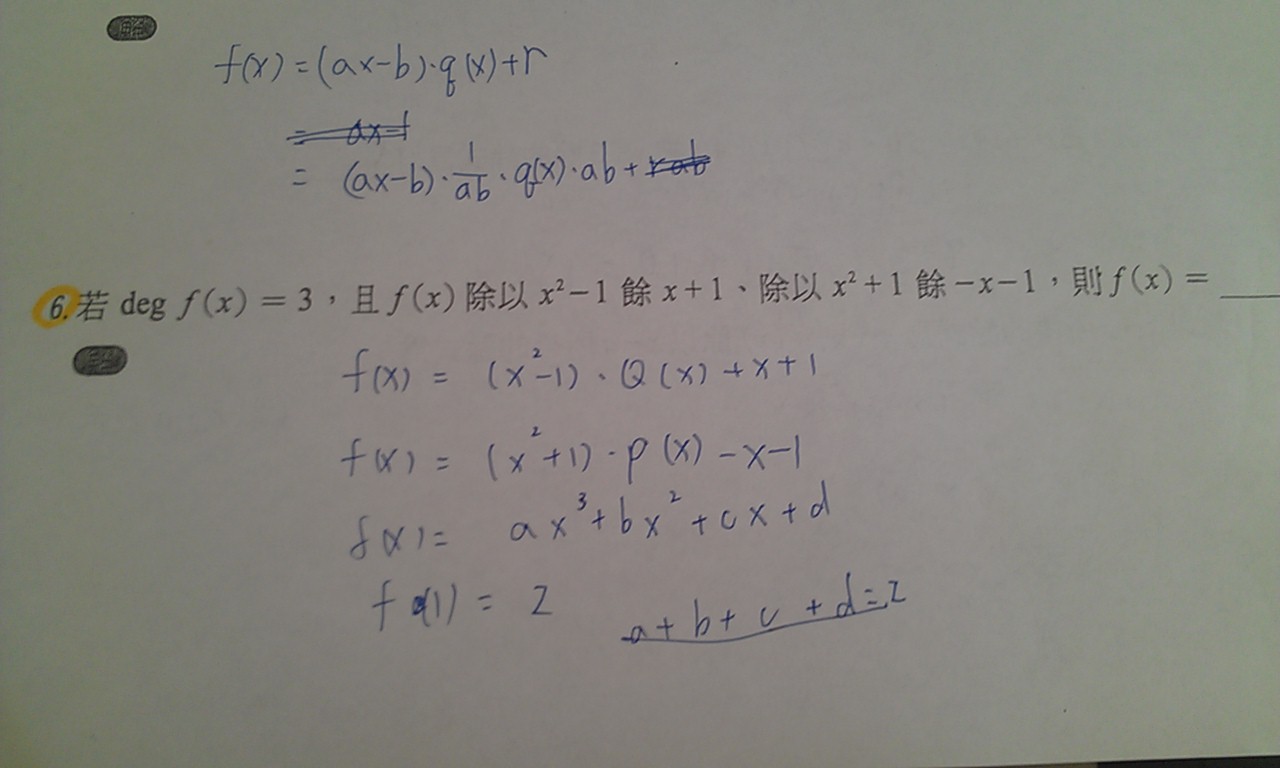 解
f(x) = (ax-b)·q(x)+r
= ax-1
= (ax-b)·1/ab·q(x)·ab+rab
6.若 deg f(x) = 3,且 f(x) 除以 x²-1 餘 x+1、除以 x²+1 餘 -x-1,則 f(x) = ____
f(x) = (x²-1)·Q(x)+x+1
f(x) = (x²+1)·p(x)-x-1
f(x) = ax³+bx²+cx+d
f(1) = 2 a+b+c+d=2